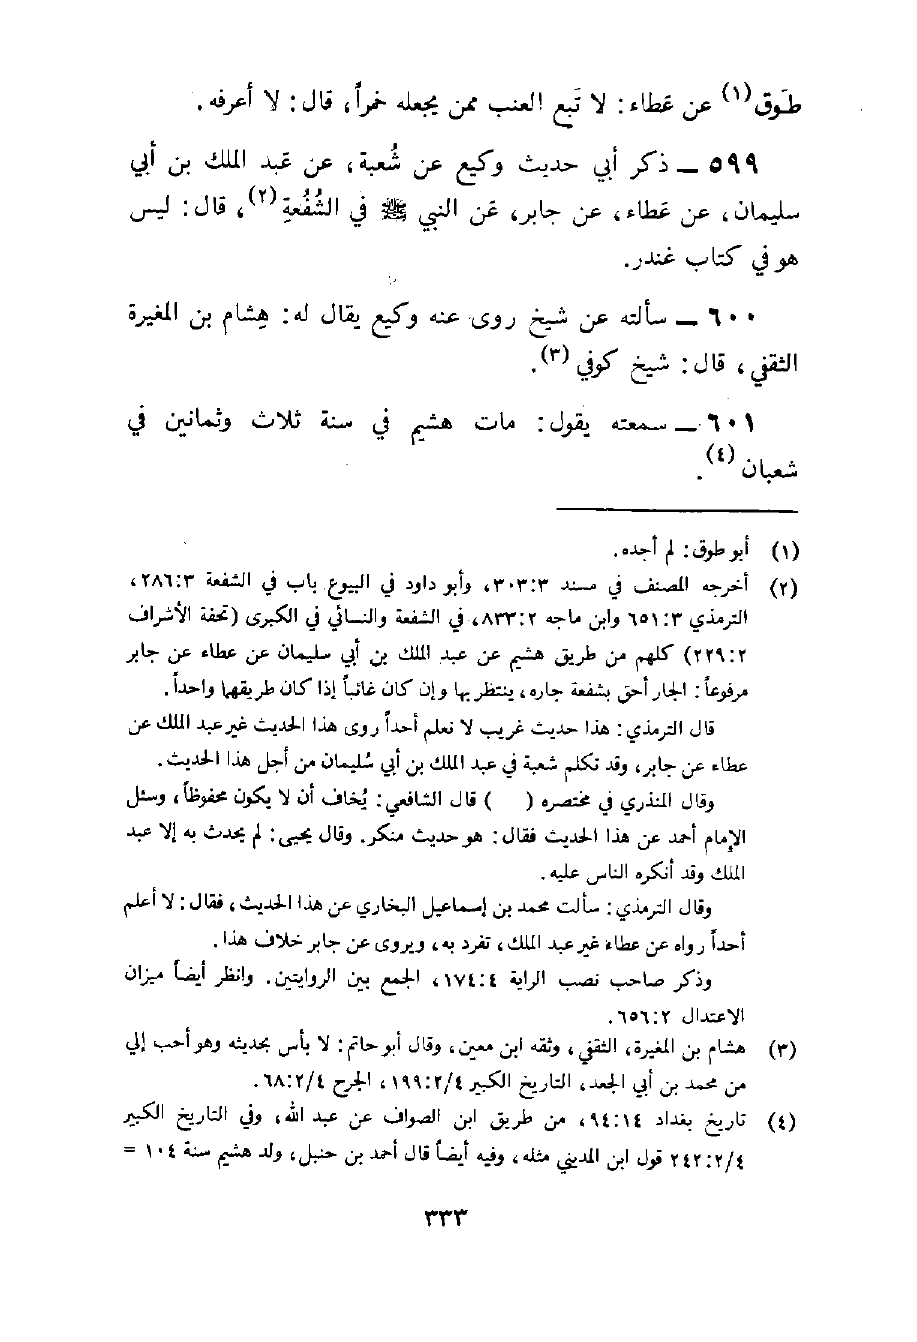 طَوق(١) عن عَطاء: لا تَبع العنب ممن يجعله خمراً، قال: لا أعرفه.
٥٩٩ ـ ذكر أبي حديث وكيع عن شُعبة، عن عَبد الملك بن أبي
سليمان، عن عَطاء، عن جابر، عَن النبي ﷺ في الشُفُعةِ(٢)، قال: ليس
هو في كتاب غندر.
٦٠٠ ـ سألته عن شيخ روى عنه وكيع يقال له: هِشام بن المغيرة
الثقفي، قال: شيخ كوفي(٣).
٦٠١ ـ سمعته يقول: مات هشيم في سنة ثلاث وثمانين في
شعبان(٤).
(١) أبو طوق: لم أجده.
(٢) أخرجه المصنف في مسند ٣٠٣:٣، وأبو داود في البيوع باب في الشفعة ٢٨٦:٣،
الترمذي ٦٥١:٣ وابن ماجه ٨٣٣:٢، في الشفعة والنسائي في الكبرى (تحفة الأشراف
٢٢٩:٢) كلهم من طريق هشيم عن عبد الملك بن أبي سليمان عن عطاء عن جابر
مرفوعاً: الجار أحق بشفعة جاره، ينتظر بها وإن كان غائباً إذا كان طريقهما واحداً.
قال الترمذي: هذا حديث غريب لا نعلم أحداً روى هذا الحديث غير عبد الملك عن
عطاء عن جابر، وقد تكلم شعبة في عبد الملك بن أبي سُليمان من أجل هذا الحديث.
وقال المنذري في مختصره (    ) قال الشافعي: يُخاف أن لا يكون محفوظاً، وسئل
الإمام أحمد عن هذا الحديث فقال: هو حديث منكر. وقال يحيى: لم يحدث به إلا عبد
الملك وقد أنكره الناس عليه.
وقال الترمذي: سألت محمد بن إسماعيل البخاري عن هذا الحديث، فقال: لا أعلم
أحداً رواه عن عطاء غير عبد الملك، تفرد به، ويروى عن جابر خلاف هذا.
وذكر صاحب نصب الراية ١٧٤:٤، الجمع بين الروايتين. وانظر أيضاً ميزان
الاعتدال ٦٥٦:٢.
(٣) هشام بن المغيرة، الثقفي، وثقه ابن معين، وقال أبو حاتم: لا بأس بحديثه وهو أحب إلي
من محمد بن أبي الجعد، التاريخ الكبير ١٩٩:٢/٤، الجرح ٦٨:٢/٤.
(٤) تاريخ بغداد ٩٤:١٤، من طريق ابن الصواف عن عبد الله، وفي التاريخ الكبير
٢٤٢:٢/٤ قول ابن المديني مثله، وفيه أيضاً قال أحمد بن حنبل، ولد هشيم سنة ١٠٤ =
٣٣٣